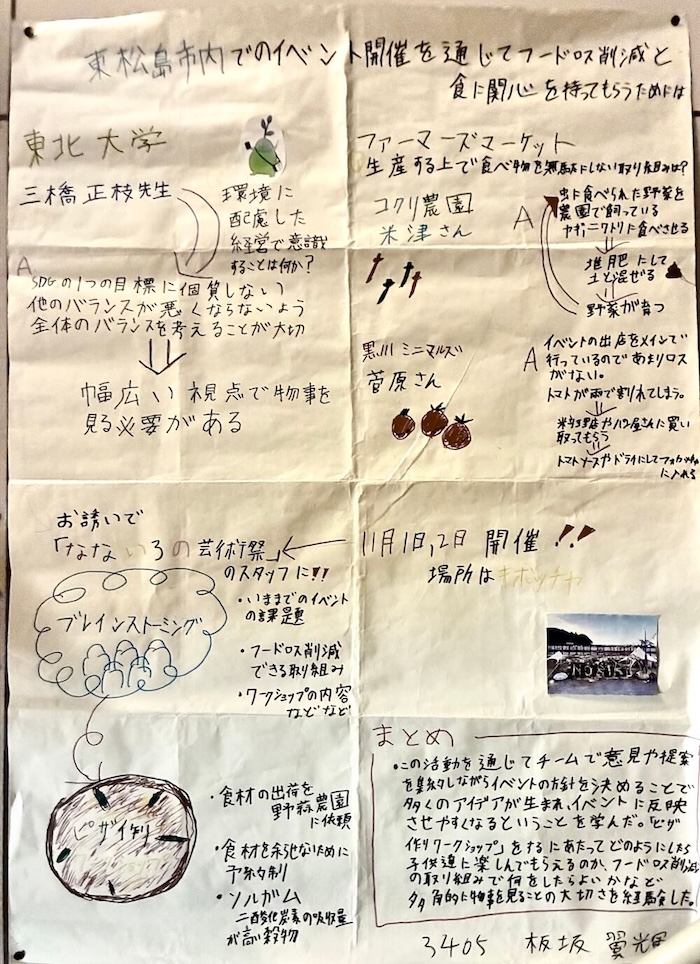 東松島市内でのイベント開催を通じてフードロス削減と
食に関心を持ってもらうためには
東北大学
三橋 正枝先生
環境に
配慮した
経営で意識
することは何か?
A
SDGの1つの目標に固質しない
他のバランスが悪くならないよう
全体のバランスを考えることが大切
幅広い視点で物事を
見る必要がある
ファーマーズマーケット
生産する上で食べ物を無駄にしない取り組みは?
コクリ農園
米津さん
A
虫に食べられた野菜を
農園で飼っている
ヤギ、ニワトリに食べさせる
堆肥にして
土と混ぜる
野菜が育つ
黒川 ミニマルズ
菅原さん
A
イベントの出店をメインで
行っているのであまりロス
がない。
トマトが雨で割れてしまう。
やパン屋さんに買い
取ってもらう
トマトソースやドライにしてフォカッチャ
に入れる
お誘いで
「なないろの芸術祭」
のスタッフに!!
11月1日,2日 開催!!
場所はキボッチャ
ブレインストーミング
・いままでのイベント
の課題
・フードロス削減
できる取り組み
・ワークショップの内容
などなど
NOBIRU
ピザ作り
・食材の出荷を
野蒜農園
に依頼
・食材を余らせないために
予約制
・ソルガム
二酸化炭素の吸収量
が高い穀物
まとめ
・この活動を通じてチームで意見や提案
を集約しながらイベントの方針を決めることで
多くのアイデアが生まれ、イベントに反映
させやすくなるということを学んだ。「ピザ
作りワークショップ」をするにあたってどのようにしたら
子供達に楽しんでもらえるのか、フードロス削減
の取り組みで何をしたらよいかなど
多角的に物事を見ることの大切さを経験した。
3405 板坂 翼